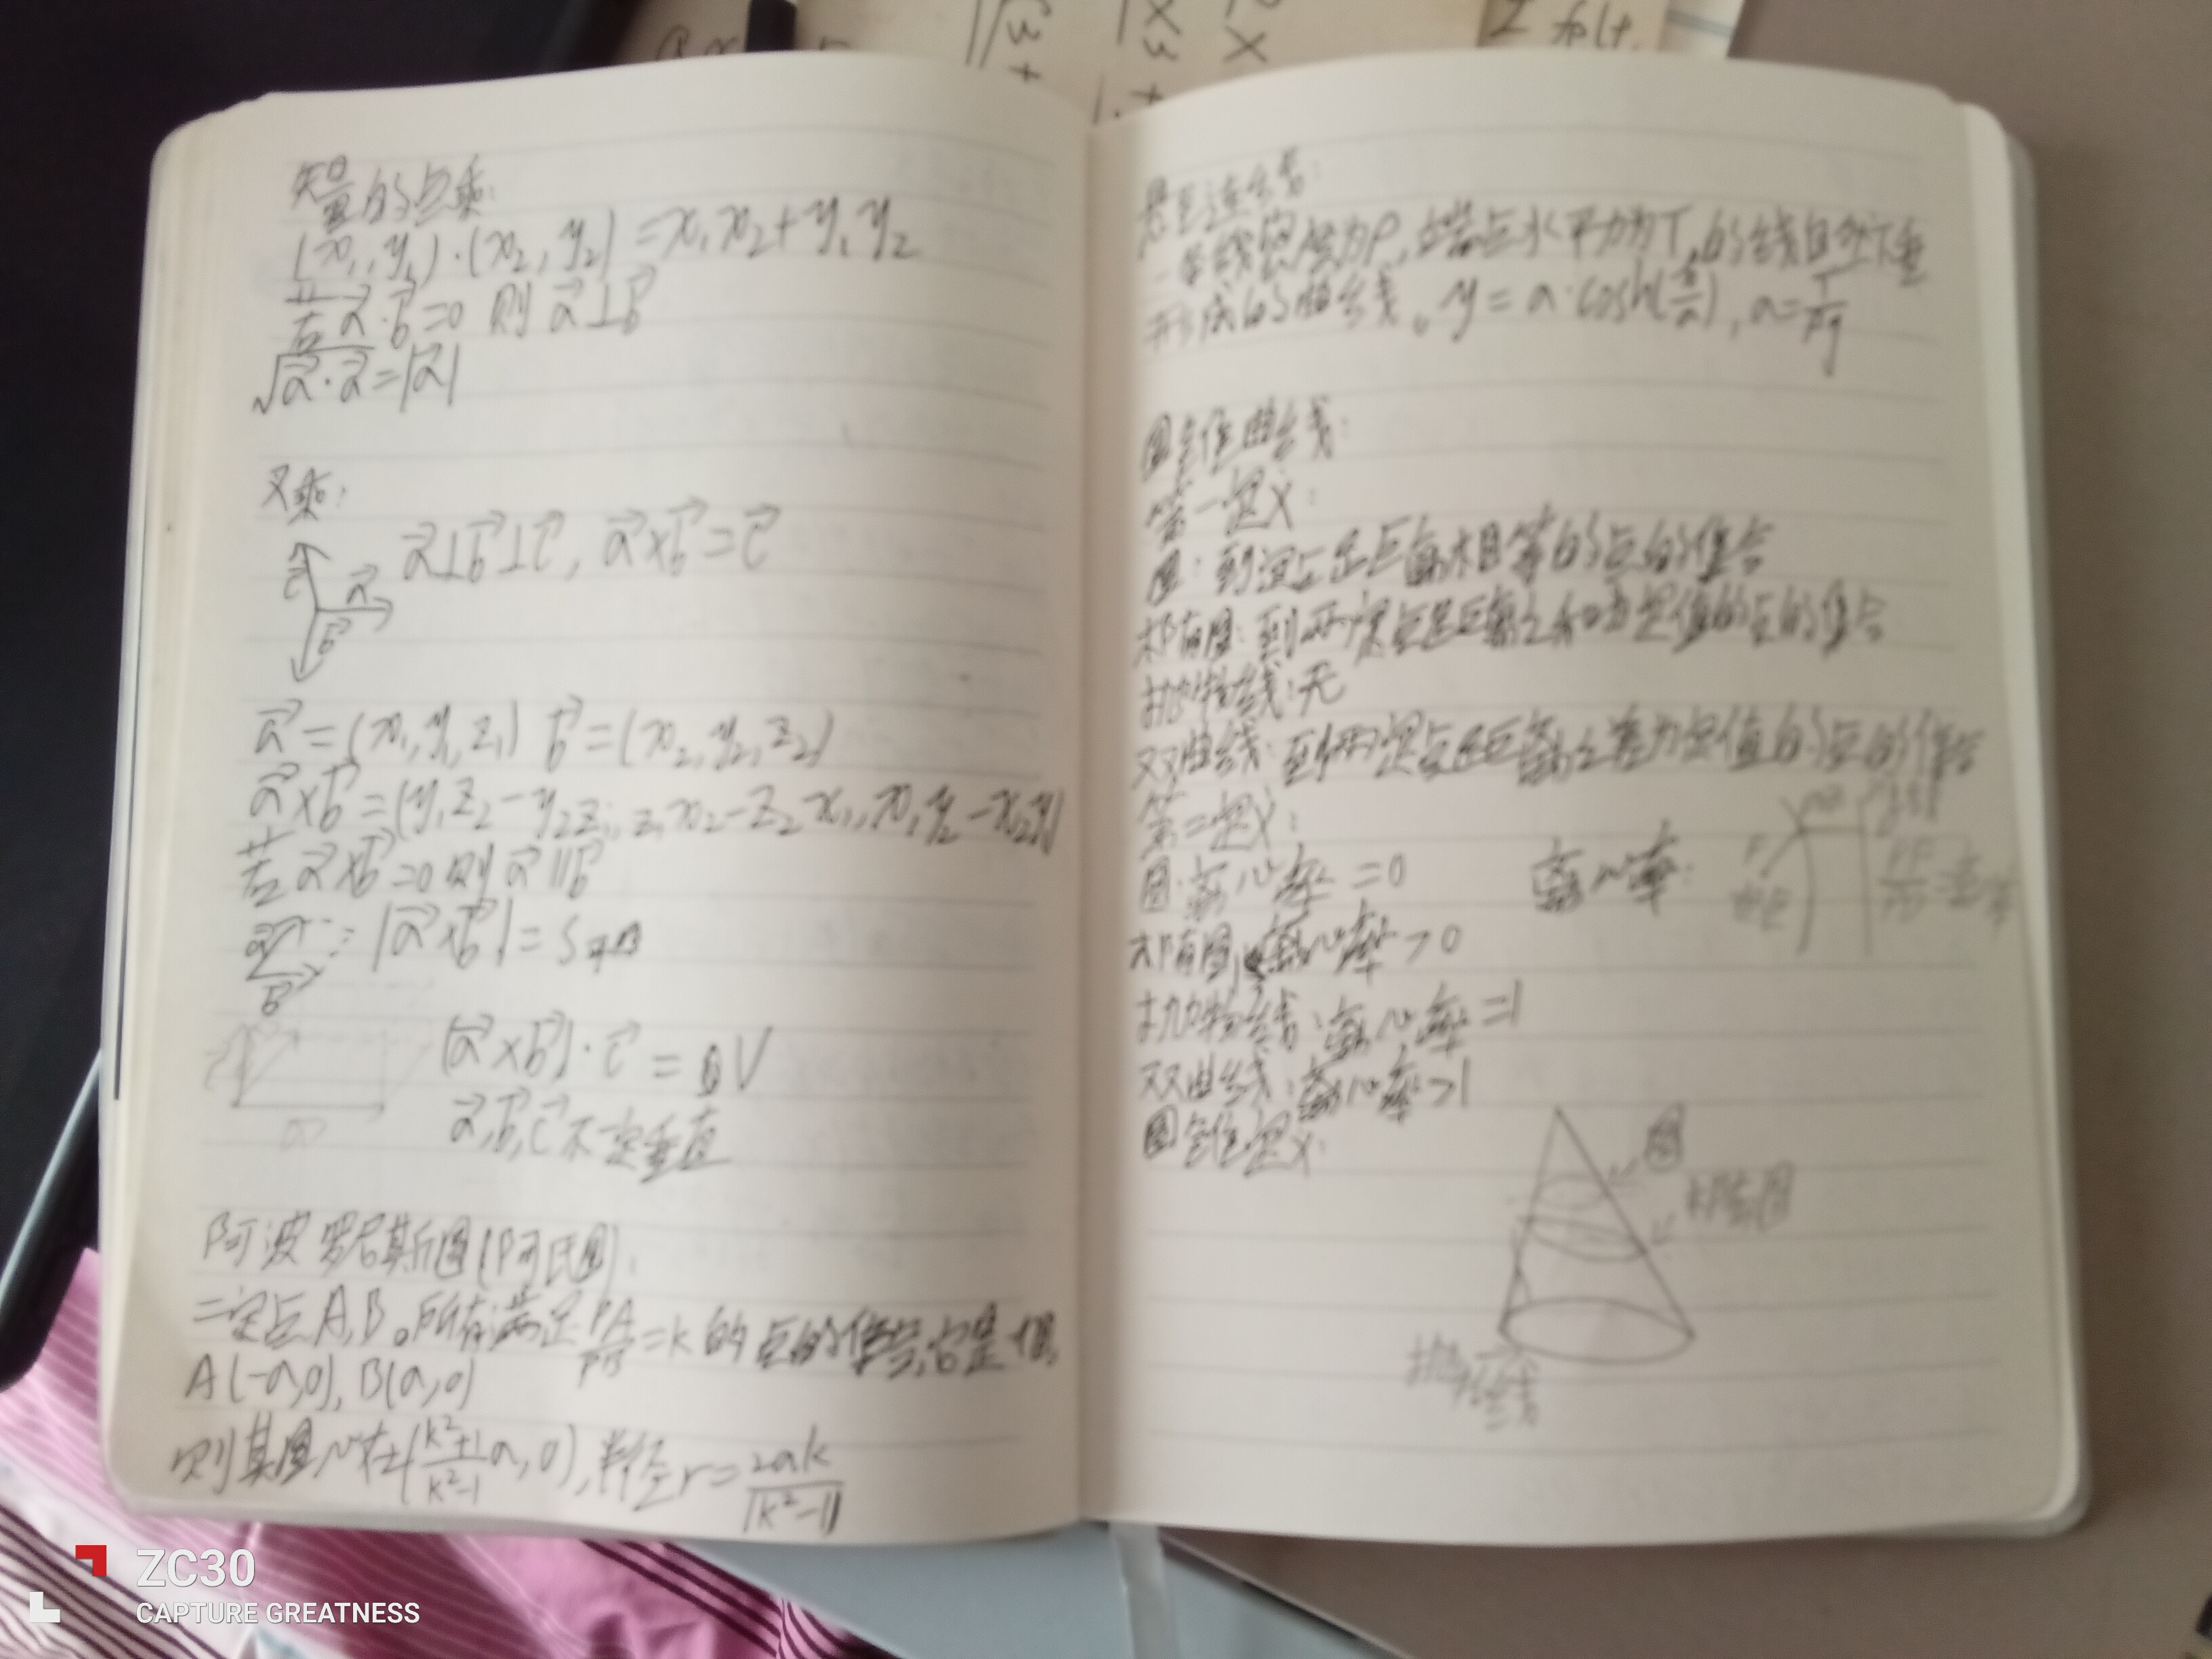 矢量的点乘:
(x₁,y₁)·(x₂,y₂)=x₁x₂+y₁y₂
若a⃗·b⃗=0 则 a⃗⊥b⃗
√a⃗·a⃗=|a⃗|
叉乘:
a⃗⊥b⃗⊥c⃗, a⃗×b⃗=c⃗
c⃗
a⃗
b⃗
a⃗=(x₁,y₁,z₁) b⃗=(x₂,y₂,z₂)
a⃗×b⃗=(y₁z₂-y₂z₁, z₁x₂-z₂x₁, x₁y₂-x₂y₁)
若a⃗×b⃗=0则a⃗∥b⃗
a⃗
|a⃗×b⃗|=S
b⃗
(a⃗×b⃗)·c⃗=V
a⃗,b⃗,c⃗不一定垂直
阿波罗尼斯圆(阿氏圆):
二定点A,B。所有满足PA/PB=k的点的集合,它是个圆
A(-a,0),B(a,0)
则其圆心在(k²+1/k²-1 a,0),半径r=2ak/|k²-1|
悬链线:
一条线密度为ρ,端点水平力为T,的线自然下垂
形成的曲线。y=a·cosh(x/a),a=T/ρg
圆锥曲线:
第一定义:
圆:到定点距离相等的点的集合
椭圆:到两定点距离之和为定值的点的集合
抛物线:无
双曲线:到两定点距离之差为定值的点的集合
第二定义:
圆:离心率=0
离心率:
椭圆:离心率>0
抛物线:离心率=1
双曲线:离心率>1
圆锥定义:
圆
椭圆
抛物线
ZC30
CAPTURE GREATNESS